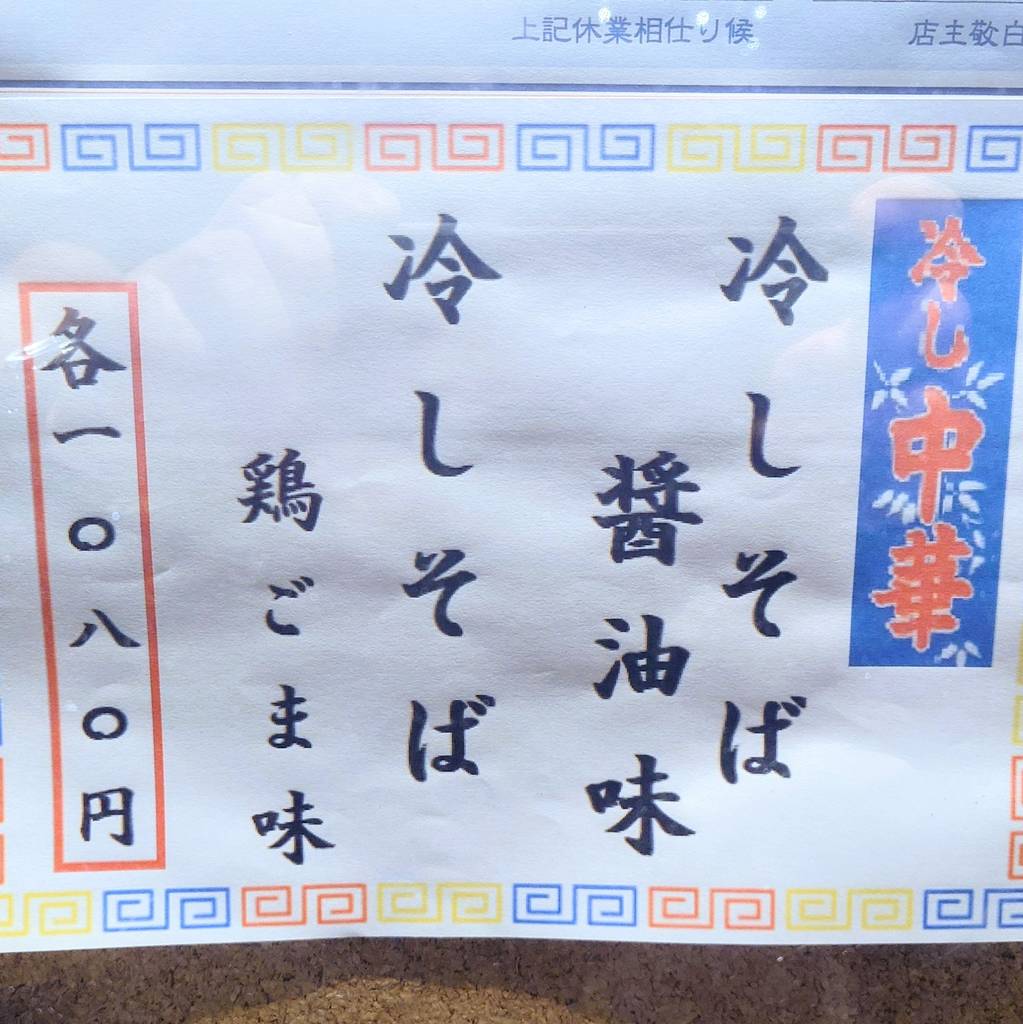 上記休業相仕り候
店主敬白
冷し中華
冷しそば
醤油味
冷しそば
鶏ごま味
各一〇八〇円